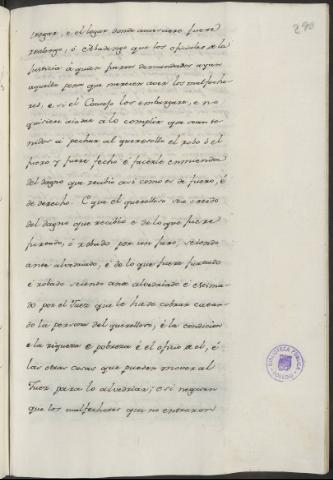 290
lregar, e el logar donde acaesciere fuere
realengo, ó Abadengo que los oficiales de la
Justicia á quien fueren demandados ayan
aquella pena que merecen aver los malfecho-
res, e si el Concejo los embargare, e no
quisiere aiudar á lo complir que sean te-
nidos á pechar al querelloso el robo ó el
furto y fuere fecho é facerle emmienda
del dagno que recibió asi como es de fuero, é
de derecho. E que el querelloso sea creido
del dagno que recibió e de lo que fuere
furtado, ó robado por su juro, seiendo
ante alvedriado, é de lo que fuere furtado
e robado seiendo ante alvedriado é estima-
do por el Juez que lo ha de cobrar catan-
do la persona del querelloso, é la condicion
e la riqueza e pobreza é el oficio de el, é
las otras cosas que pueden mover al
Juez para lo alvedriar; e si negaren
que los malfechores que no entraron
BIBLIOTECA PÚBLICA
TOLEDO